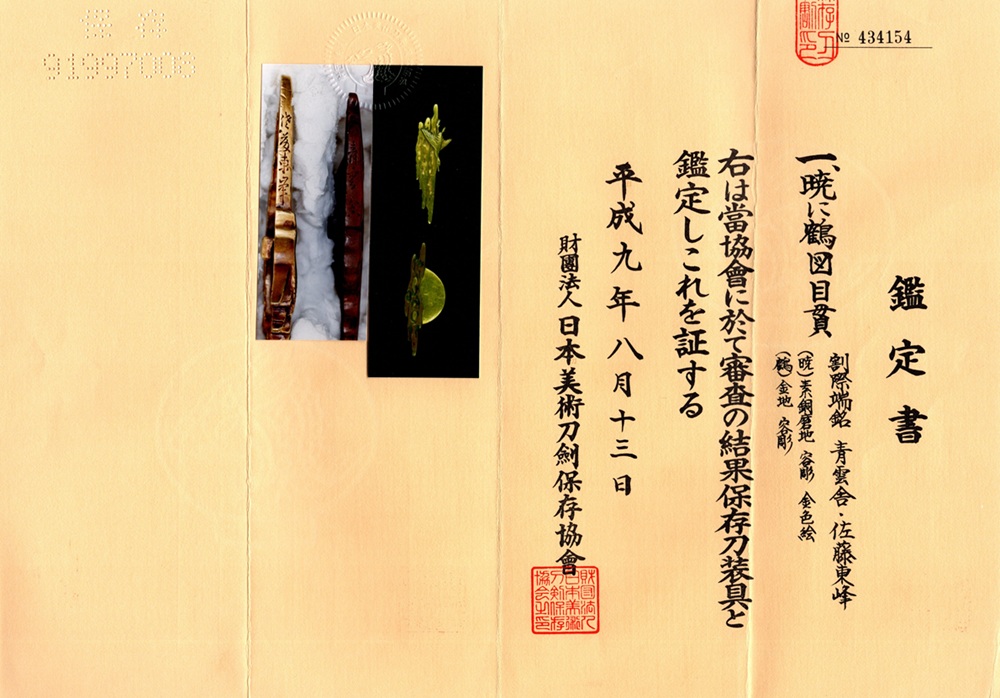 鑑定書
一、暁に鶴図目貫
割際端銘 青雲舎・佐藤東峰
(暁)素銅磨地 容彫 金色絵
(鶴)金地 容彫
右は當協會に於て審査の結果保存刀装具と
鑑定しこれを証する
平成九年八月十三日
財團法人日本美術刀劍保存協會
財団法人
日本美術
刀剣保存
協会之印
№ 434154
保存
91997006
佐藤東峯